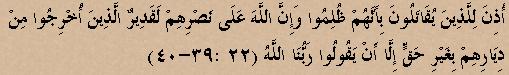 أُذِنَ لِلَّذِينَ يُقَاتَلُونَ بِأَنَّهُمْ ظُلِمُوا وَإِنَّ اللَّهَ عَلَى نَصْرِهِمْ لَقَدِيرٌ الَّذِينَ أُخْرِجُوا مِنْ
دِيَارِهِمْ بِغَيْرِ حَقٍّ إِلَّا أَنْ يَقُولُوا رَبُّنَا اللَّهُ (٢٢ :٣٩-٤٠)